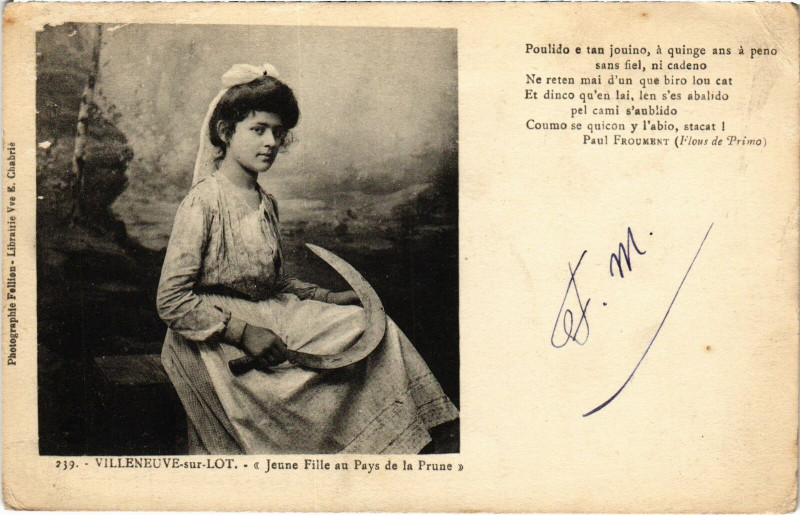 Poulido e tan jouino, à quinge ans à peno
sans fiel, ni cadeno
Ne reten mai d'un que biro lou cat
Et dinco qu'en lai, len s'es abalido
pel cami s'aublido
Coumo se quicon y l'abio, stacat !
Paul FROUMENT (Flous de Primo)
F. M.
Photographie Fellion - Librairie Vve E. Chabrié
239. - VILLENEUVE-sur-LOT. - « Jeune Fille au Pays de la Prune »